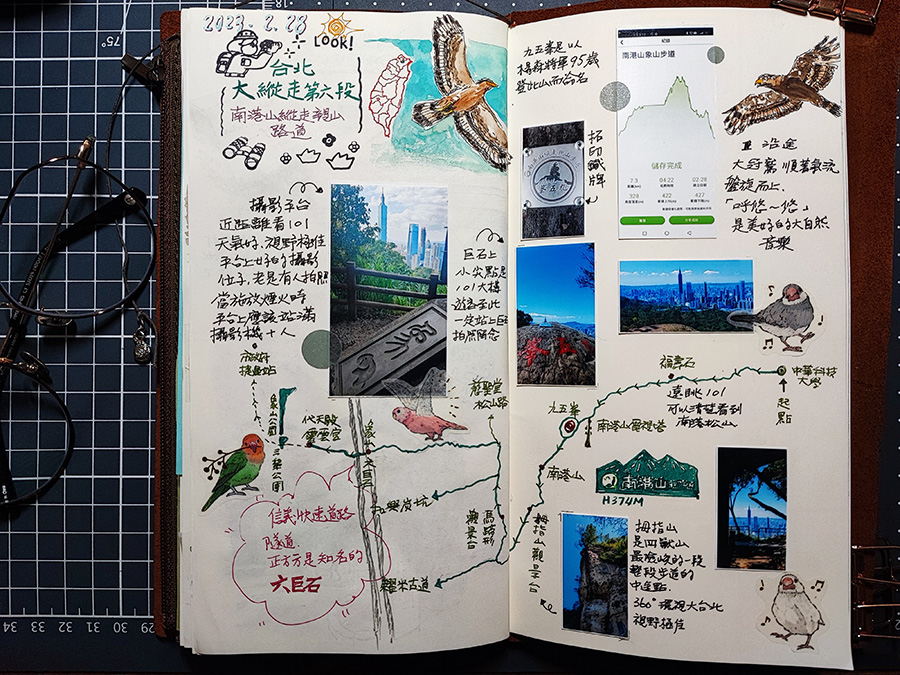 2023.2.28
LOOK!
台北
大縱走第六段
南港山縱走親山
路道
攝影平台
近距離看101
天氣好、視野極佳
平台上好的攝影
位子,老是有人拍照
當施放煙火時
平台上應該站滿
攝影機+人
巨石上
小尖點是
101大樓
遊客至此
一定站上巨石
拍照留念
市政府
捷運站
象山公園
三犁公園
代天殿
靈雲宮
象山
六巨石
慈聖堂
松山路
觀景台
糶米古道
信義快速道路
隧道.
正方方是知名的
六巨石
九五峯是以
楊森將軍95歲
登此山而命名
拓印鐵牌
紀錄
南港山象山步道
儲存完成
7.3
04:22
02:28
328
422
422
沿途
大冠鷲順著氣流
盤旋而上.
「呼悠~悠」
是美好的大自然
音樂
福壽石
中華科技
大學
起點
遠眺101
可以清楚看到
南港松山
九五峯
南港山電視塔
南港山
南港山
H374M
拇指山觀景台
拇指山
是四獸山
最險峻的一段
整段步道的
中途點.
360°環視大台北
視野極佳
34 33 32 31 30 29
75°